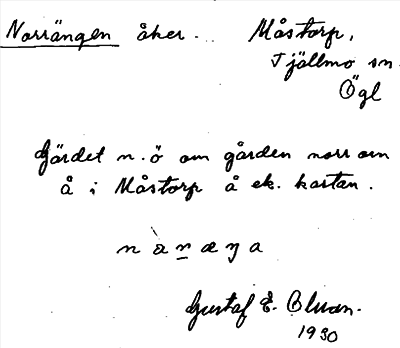 Norrängen åker. Måstorp,
Tjällmo sn.
Ögl
Gärdet n.ö om gården norr om
å i Måstorp å ek. kartan.
Gustaf E.
1930